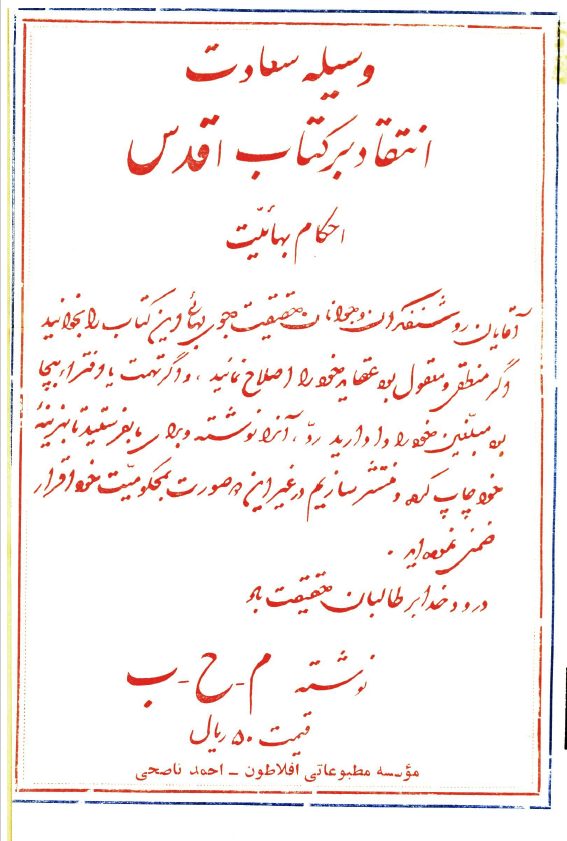 وسیله سعادت
انتقاد بر کتاب اقدس
احکام بهائیت
آقایان روشنفکران و جوانان حقیقت جوی بهائی این کتاب را بخوانید
اگر منطقی و معقول بود عقاید خود را اصلاح نمائید ، و اگر تهمت یا افتراء بیجا
بود مبلّغین خود را وادارید ردّ ، آنرا نوشته و برای ما بفرستید تا بهزینهٔ
خود چاپ کرده و منتشر سازیم در غیر این صورت بمحکومیّت خود اقرار
ضمنی نموده اید .
درود خدا بر طالبان حقیقت باد
نوشته م - ح - ب
قیمت ۵۰ ریال
مؤسسه مطبوعاتی افلاطون ــ احمد ناصحی